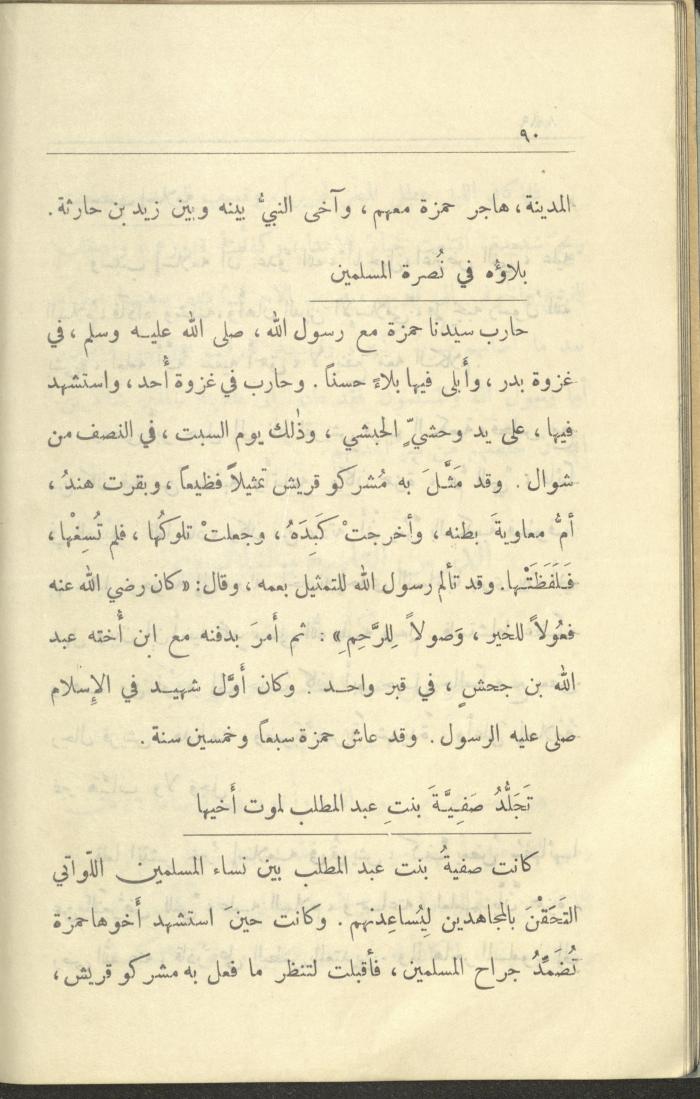 ٩٠
المدينة، هاجر حمزة معهم، وآخى النبيُّ بينه وبين زيد بن حارثة.
بلاؤه في نُصرة المسلمين
حارب سيدنا حمزة مع رسول الله، صلى الله عليه وسلم، في
غزوة بدر، وأَبلى فيها بلاءً حسناً. وحارب في غزوة أُحد، واستشهد
فيها، على يد وحشيٍّ الحبشي، وذٰلك يوم السبت، في النصف من
شوال. وقد مَثَّلَ به مُشركو قريش تمثيلاً فظيعاً، وبقرت هندُ،
أمُّ معاويةَ بطنه، وأخرجتْ كَبِدَهُ، وجعلتْ تلوكُها، فلم تُسِغْها،
فَلَفَظَتْها. وقد تألم رسول الله للتمثيل بعمه، وقال: «كان رضي الله عنه
فعُولاً للخير، وَصولاً لِلرَّحِمِ»: ثم أَمرَ بدفنه مع ابن أُخته عبد
الله بن جحشٍ، في قبر واحد. وكان أَوَّل شهيد في الإِسلام
صلى عليه الرسول. وقد عاش حمزة سبعاً وخمسين سنة.
تَجَلُّدُ صَفِيَّةَ بنتِ عبد المطلب لموت أَخيها
كانت صفيةُ بنت عبد المطلب بين نساء المسلمين اللّواتي
التَحَقْنَ بالمجاهدين لِيُساعِدنهم. وكانت حينَ استشهد أَخوها حمزة
تُضَمِّدُ جراح المسلمين، فأقبلت لتنظر ما فعل به مشركو قريش،